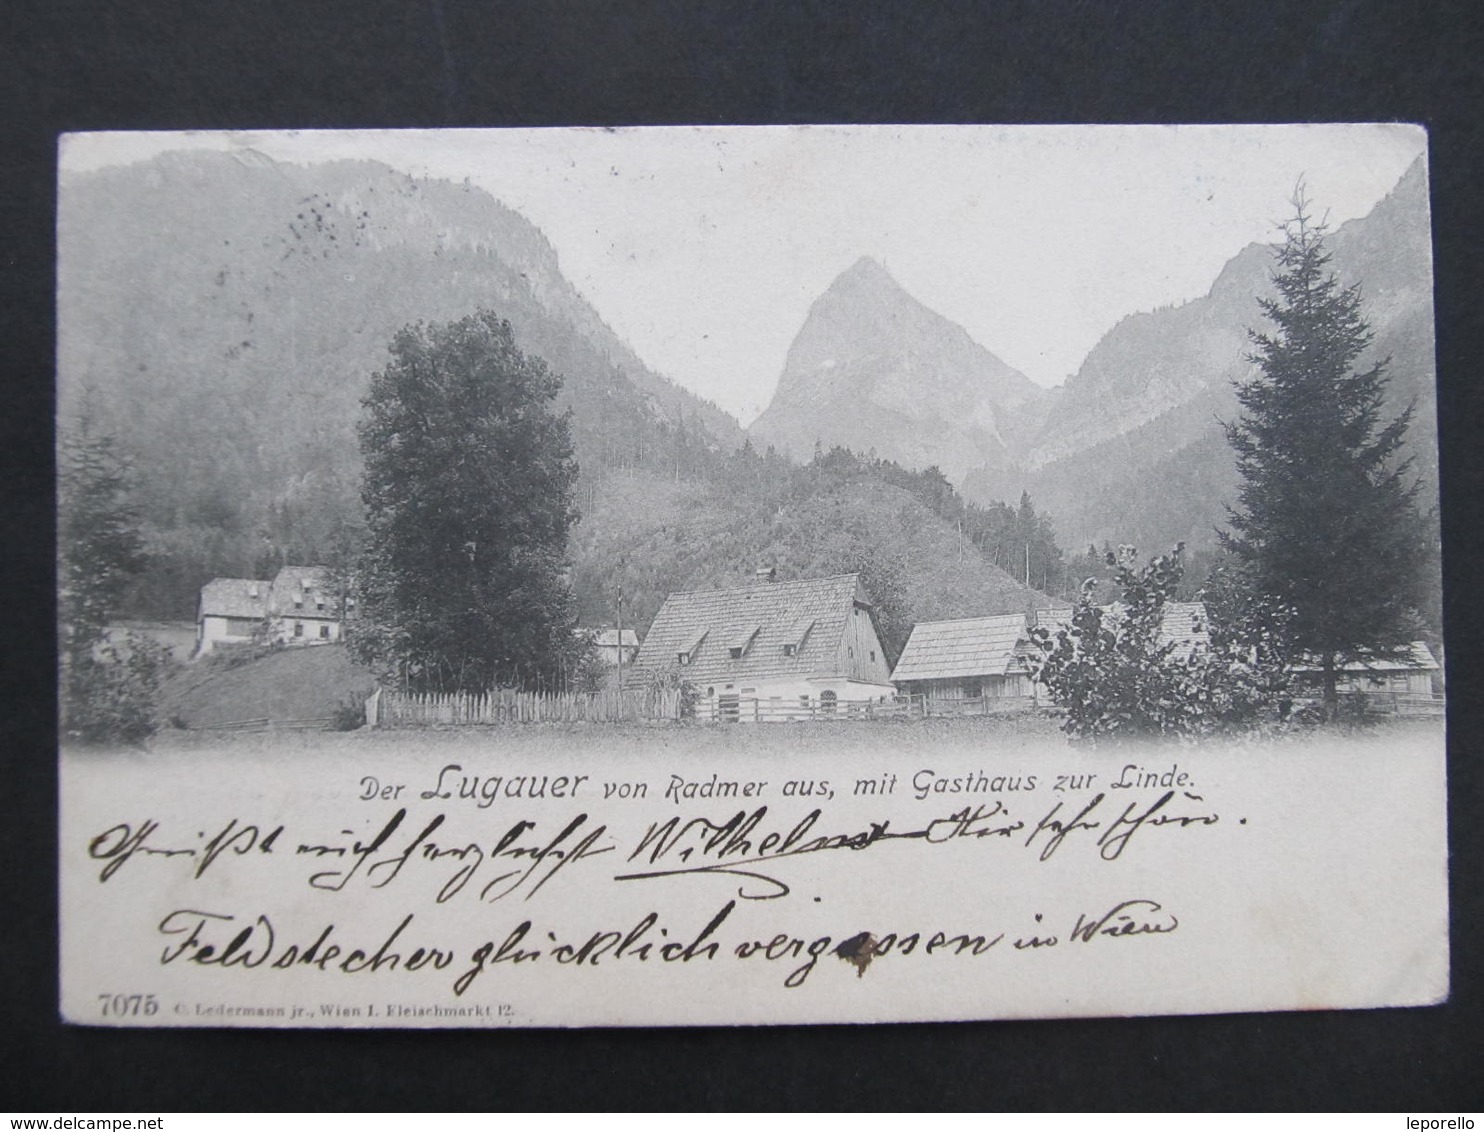 Der Lugauer von Radmer aus, mit Gasthaus zur Linde.
Grüßt euch herzlichst Wilhelm Hier sehr schön.
Feldstecher glücklich vergessen in Wien
7075 C. Ledermann jr., Wien I. Fleischmarkt 12.
delcampe.net
leporello